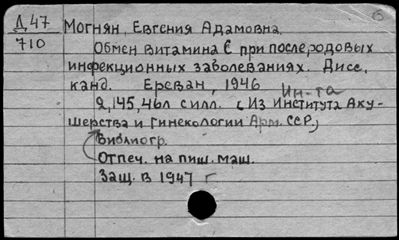 Д 47
710
Могнян, Евгения Адамовна.
Обмен витамина С при послеродовых
инфекционных заболеваниях. Дисс.
канд. Ереван, 1946
Ин-та
2,145,46л с илл. (Из Института Аку-
шерства и гинекологии Арм. ССР)
Библиогр.
Отпеч. на пиш. маш.
Защ. в 1947 г